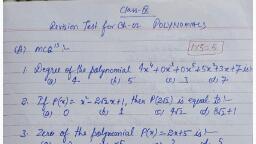 Class-IX
Revision Test for Ch-02 POLYNOMIALS
(A) MCQ's :- 1x5=5
1. Degree of the polynomial 4x⁴+0x³+0x⁵+5x+7 is
a) 4 b) 5 c) 3 d) 7
2. If P(x) = x²-2√2x+1, then P(2√2) is equal to :-
a) 0 b) 1 c) 4√2 d) 8√2+1
3. Zero of the polynomial P(x) = 2x+5 is :-